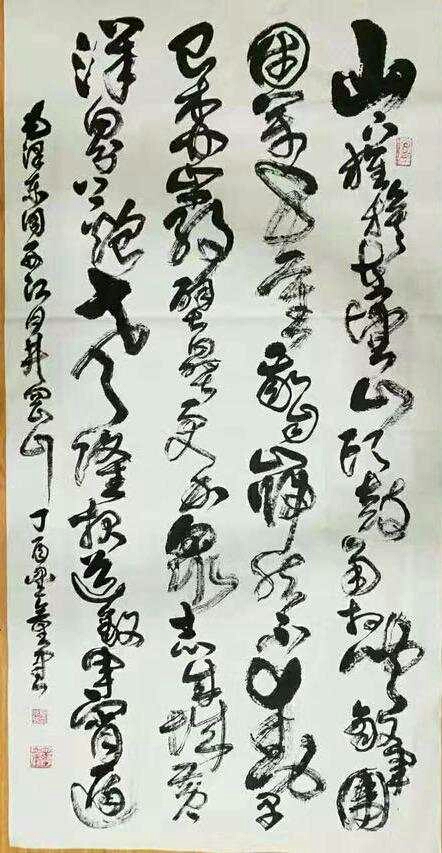 山下旌旗在望山头鼓角相闻敵軍圍
困万千重我自巋然不動早
已森嚴壁壘更加眾志成城黄
洋界上炮声隆报道敵軍宵遁
毛泽东词西江月井岡山 丁酉 书